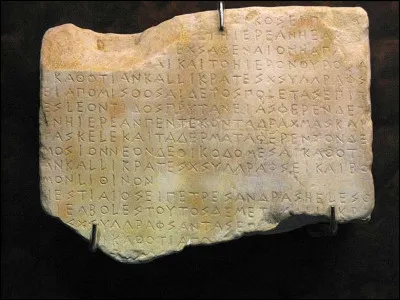 ΚΟΣΕΙΠ
ΕΙΗΙΕΡΕΑΝΗΕ
ΕΧΣΑΘΕΝΑΙΟΝΗΑΠΑ
ΑΙΚΑΙΤΟΗΙΕΡΟΝΘΥΡΟΣΑ
ΙΚΑΘΟΤΙΑΝΚΑΛΛΙΚΡΑΤΕΣΧΣΥΛΛΡΑΦΣ
ΕΙΑΠΟΜΙΣΘΟΣΑΙΔΕΤΟΣΠΟΛΕΤΑΣΕΠΙΤ
ΕΣΛΕΟΝΤΙΔΟΣΠΡΥΤΑΝΕΙΑΣΦΕΡΕΝΔΕΤ
ΕΝΗΙΕΡΕΑΝΠΕΝΤΕΚΟΝΤΑΔΡΑΧΜΑΣΚΑΙ
ΤΑΣΚΕΛΕΚΑΙΤΑΔΕΡΜΑΤΑΦΕΡΕΝΤΟΝΔΕ
ΜΟΣΙΟΝΝΕΟΝΔΕΟΙΚΟΔΟΜΕΣΑΙΚΑΘΟΤΙ
ΑΝΚΑΛΛΙΚΡΑΤΕΣΧΣΥΛΛΡΑΦΣΕΙΚΑΙΒΟ
ΜΟΝΛΙΘΙΝΟΝ
ΗΕΣΤΙΑΙΟΣΕΙΠΕΤΡΕΣΑΝΔΡΑΣΗΕΛΕΣΘ
ΑΙΕΛΒΟΛΕΣΤΟΥΤΟΣΔΕΜΕΤ
ΧΣΥΛΛΡΑΦΣΑΝΤΑΣΕΠ
ΕΙΚΑΘΟΤΙΑΠΟΜ